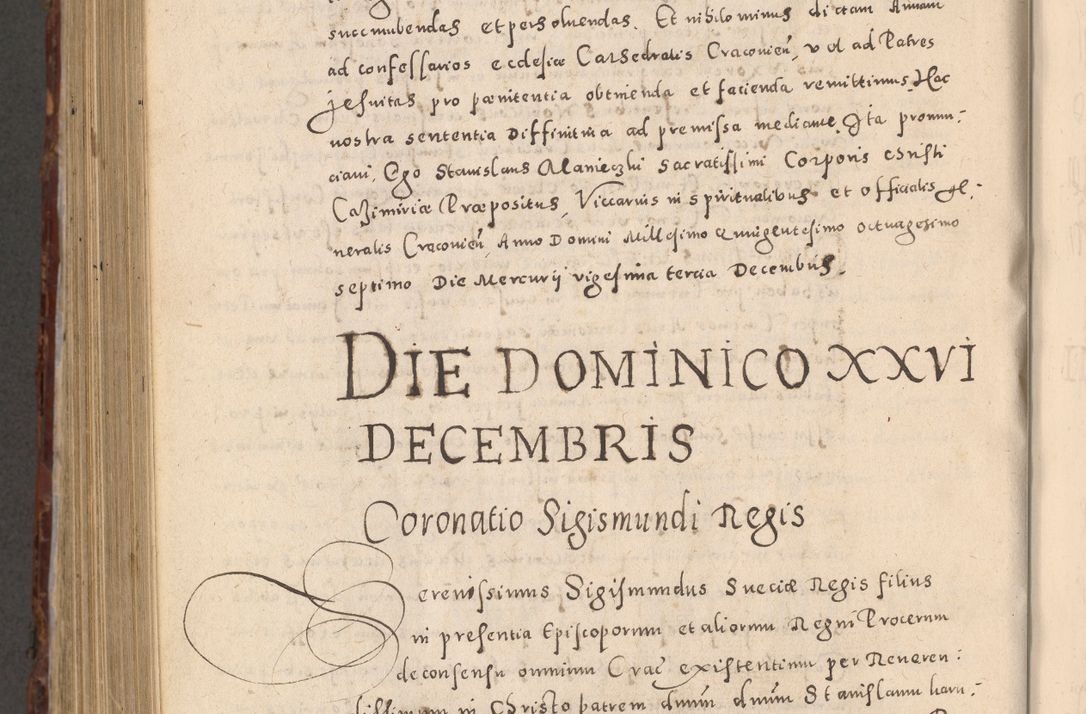 succumbendas et persoluendas. Et nihilominus dictam Annam
ad confessarios ecclesiæ Cathedralis Cracovien̄, vel ad Patres
Jesuitas pro pænitentia obtinenda et facienda remittimus. Hac
nostra sententia Diffinitiua ad premissa mediante. Ita pronun:
ciaui. Ego Stanislaus Manieczki Sacratissimi Corporis Christi
Cazimiriæ Præpositus, Viccarius in spiritualibus et officialis ge:
neralis Cracovien̄, Anno Domini Millesimo Quingentesimo octuagesimo
septimo Die Mercurij vigesima tercia Decembris.
DIE DOMINICO XXVI
DECEMBRIS
Coronatio Sigismundi Regis
Serenissimus Sigismundus Sueciæ Regis filius
in presentia Episcoporum et aliorum Regni Procerum
de consensu omnium Crac̄ existentium per Reueren:
dissimum in Christo patrem dnum dnum Stanislaum karn: